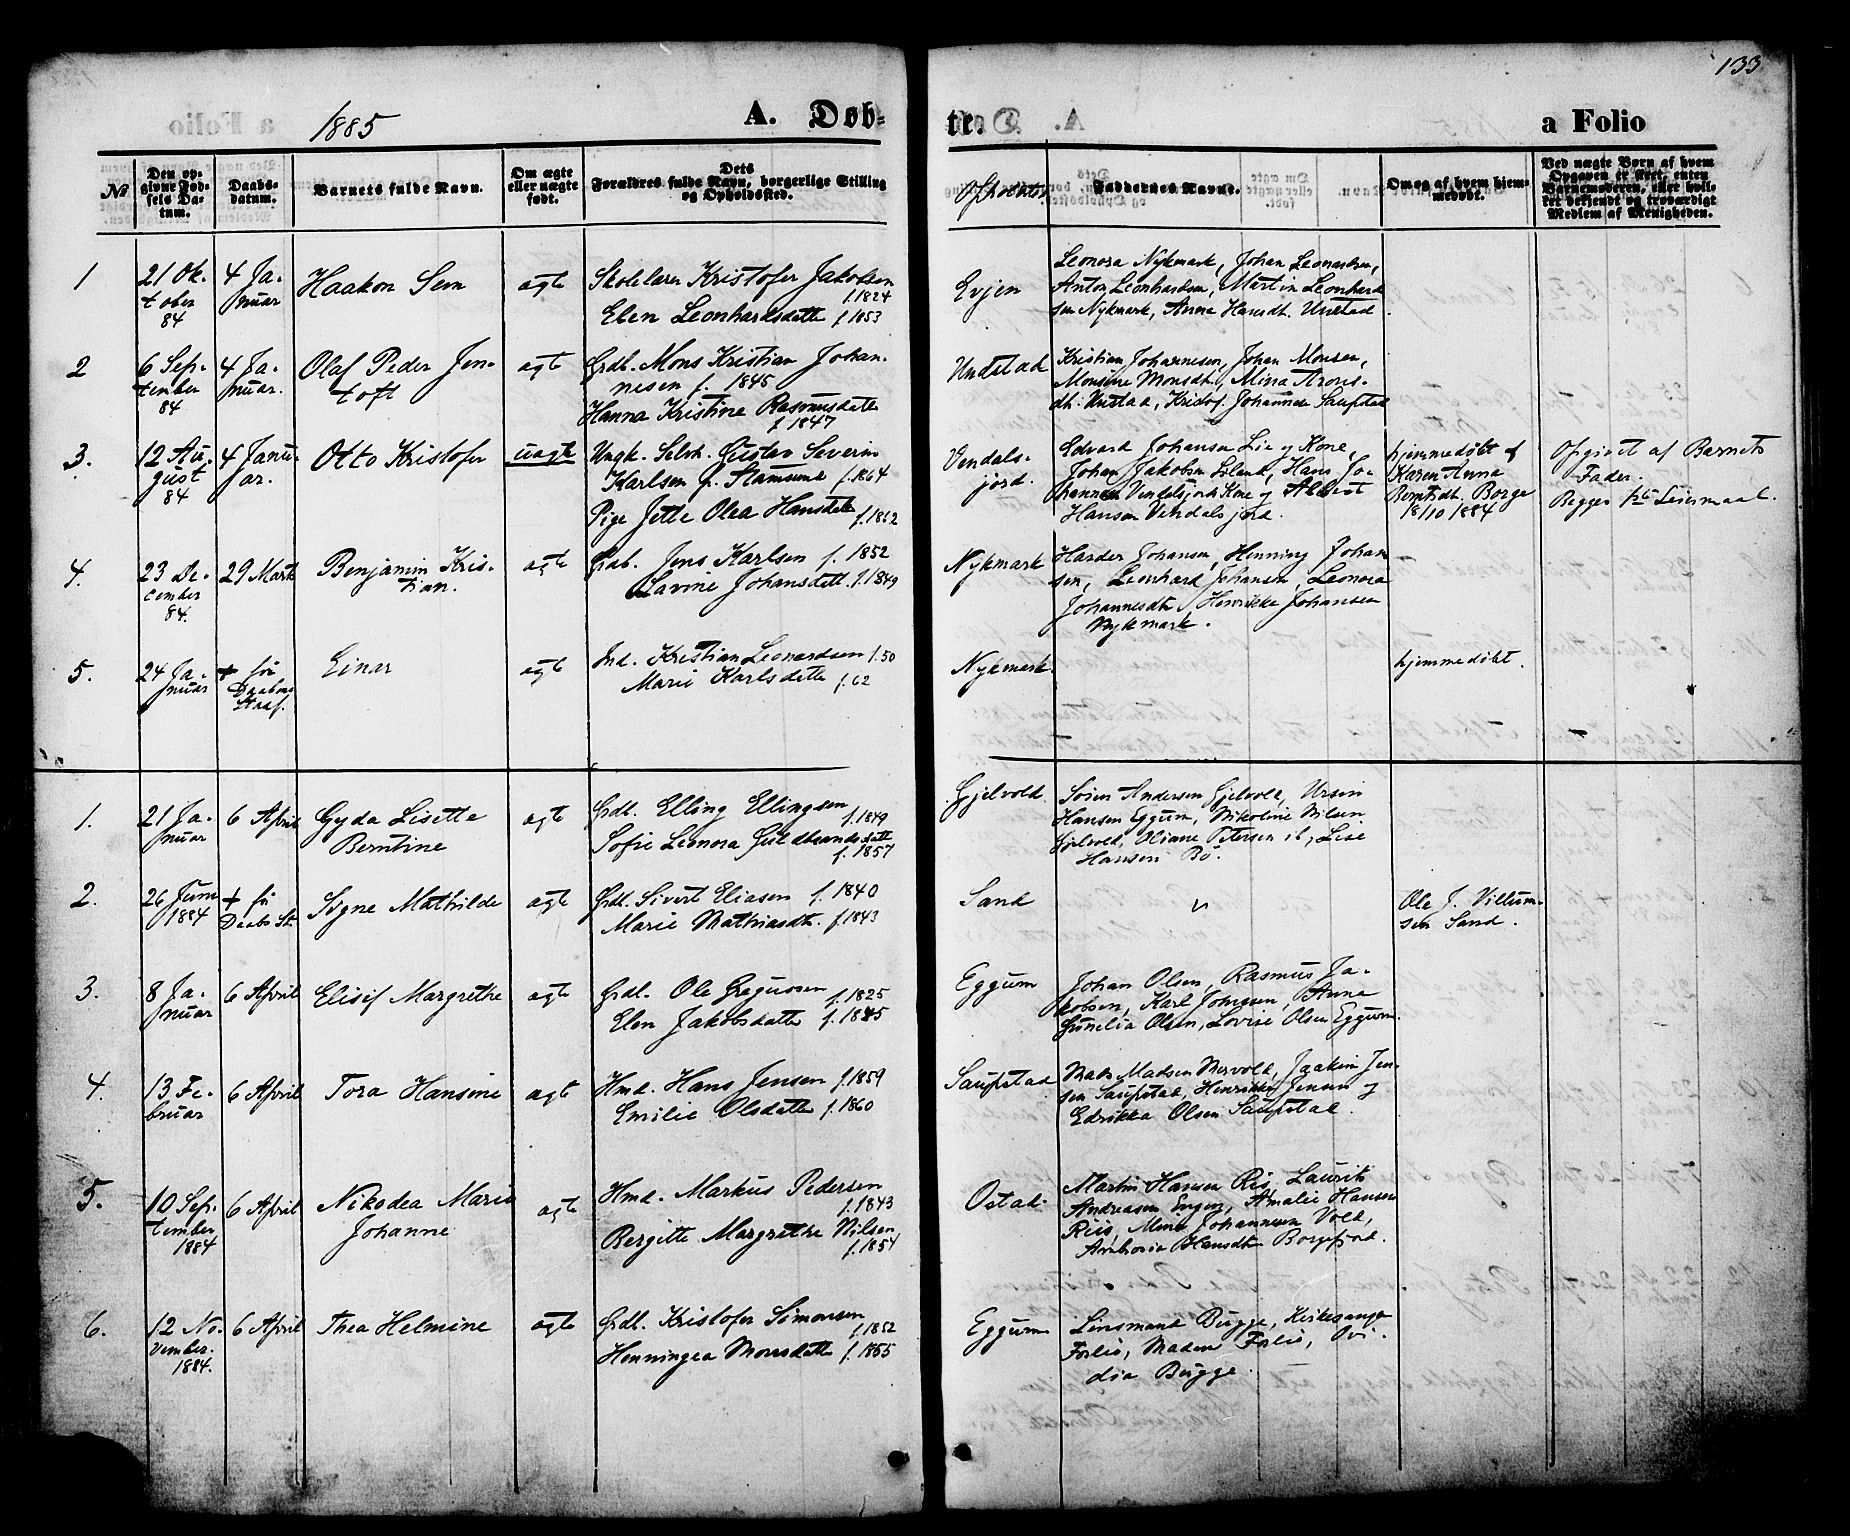 133
1885
A. Døb-
tr.
a Folio
No
Den op-
givne Fød-
sels Da-
tum.
Daabs-
datum.
Barnets fulde Navn.
Om ægte
eller uægte
født.
Dets
Forældres fulde Navn, borgerlige Stilling
og Opholdssted.
Opholdsted
Faddernes Navne.
Om og af hvem hjem-
medøbt.
Ved uægte Børn af hvem
Opgaven er skeet, enten
Barnemoderen, eller hvil-
ket bekjendt og troværdigt
Medlem af Menigheden.
1
21 Ok-
tober
84
4 Ja-
nuar
Haakon Sem
ægte
Skolelærer Kristofer Jakobsen
f. 1824
Elen Leonhardsdatte f 1853
Evjen
Leonora Nykmark, Johan Leonardsen,
Anton Leonhardsen, Martin Leonhard
sen Nykmark, Anna Hansdt. Unstad
2
6 Sep-
tember
84
4 Ja-
nuar.
Olaf Peder Jen-
toft
ægte
Grdb. Mons Kristian Johan-
nesen f. 1845
Hanna Kristine Rasmusdatte
f 1847
Undstad
Kristian Johannesen, Johan Monsen,
Monsine Monsdt., Mina Arons-
dt. Unstad, Kristof. Johannes Saupstad
3.
12 Au-
gust
84
4 Janu-
ar.
Otto Kristofer
uægte
Ungk. Selvh. Gustav Severin
Karlsen f. Stamsund f. 1864
Pige Jette Olea Hansdatte f. 1862
Vendals-
jord.
Edvard Johansen Lie og Kone,
Johan Jakobsen Liland, Hans Jo-
hannesen Vendalsjord Kone og Albert
Hansen Vendalsjord.
hjemmedøbt af
Karen Anna
Berntsdt. Borge
18/10 1884
Opgivet af Barnets
Fader.
Begges 1ste Leiermaal.
4.
23 De-
cember
84.
29 Marts
Benjamin Kris-
tian.
ægte
Grdb. Jens Karlsen f. 1852
Lavine Johansdatt. f. 1849
Nykmark
Harder Johansen, Henning Johan
sen, Leonhard Johansen, Leonora
Johannesdt., Henrikke Johansen
Nykmark.
5.
24 Ja-
nuar
+ før
Daabens
Stadf.
Einar
ægte
Ind. Kristian Leonardsen f. 50
Marie Karlsdatte f. 62
Nykmark.
hjemmedøbt.
1.
21 Ja-
nuar
6 April
Gyda Lisette
Berntine
ægte
Grdb. Elling Ellingsen
f. 1849
Sofie Leonora Guldbrandsdatt
f. 1857
Gjelvold.
Søren Andersen Gjelvold, Ursin
Hansen Eggum, Nikoline Nilsen
Gjelvold, Oliane Petersen ib, Lise
Hansen Bø.
2.
26 Juni
1884
+ før
Daabs St.
Signe Mathilde
ægte
Grdb. Sivert Eliasen f. 1840
Marie Mathiasdt. f. 1843
Sand
"
Ole J. Villum-
sen Sand.
3.
8 Ja-
nuar
6 April
Elisif Margrethe
ægte
Grdb. Ole Gregussen f. 1825
Elen Jakobsdatte f. 1845
Eggum
Johan Olsen, Rasmus Ja-
kobsen, Karl Johnsen, Anna
Gunelia Olsen, Lovise Olsen Eggum.
4.
13 Fe-
bruar
6 April
Tora Hansine
ægte
Hmd. Hans Jensen f. 1859
Emilie Olsdatte f. 1860
Saupstad
Mads Madsen Mervold, Joakim Jen-
sen Saupstad, Henrikke Jensen og
Edrikka Olsen Saupstad.
5.
10 Sep-
tember
1884
6 April
Nikodea Marie
Johanne
ægte
Hmd. Markus Pedersen
f. 1843
Bergitte Margrethe Nilsen
f. 1854
Ostad.
Martin Hansen Ris, Laurits
Andreasen Engen, Amalie Hansen
Riis, Mina Johannesen Vold,
Hansdt Borgefjord.
6.
12 No-
vember.
1884.
6 April
Thea Helmine
ægte
Grdb. Kristofer Simonsen
f. 1852
Henningea Monsdatte f. 1855
Eggum
Linsmand Bugge, Kirkesanger
Forlie, Madam Forlie, Ovi-
dia Bugge.